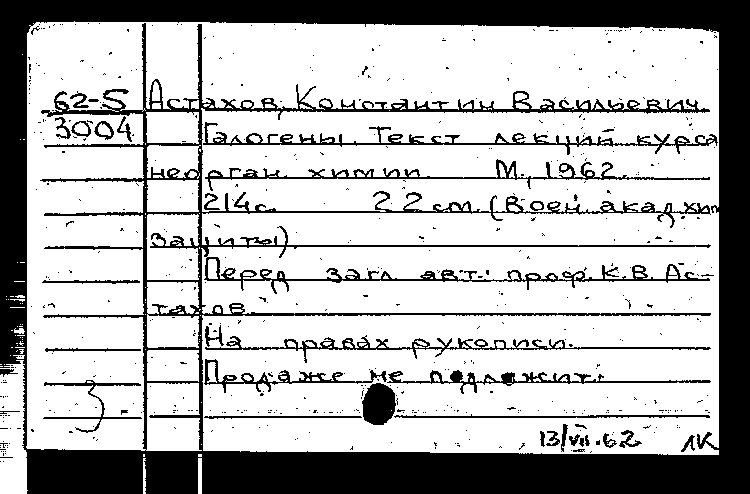 62-5 Астахов, Константин Васильевич.
3004 Галогены. Текст лекций курса
неорган. химии. М., 1962.
214с. 22 см. (Воен. акад. хим.
защиты).
Перед загл. авт.: проф. К.В. Ас-
тахов.
На правах рукописи.
Продаже не подлежит.
З.
13/VII.62 ЛК